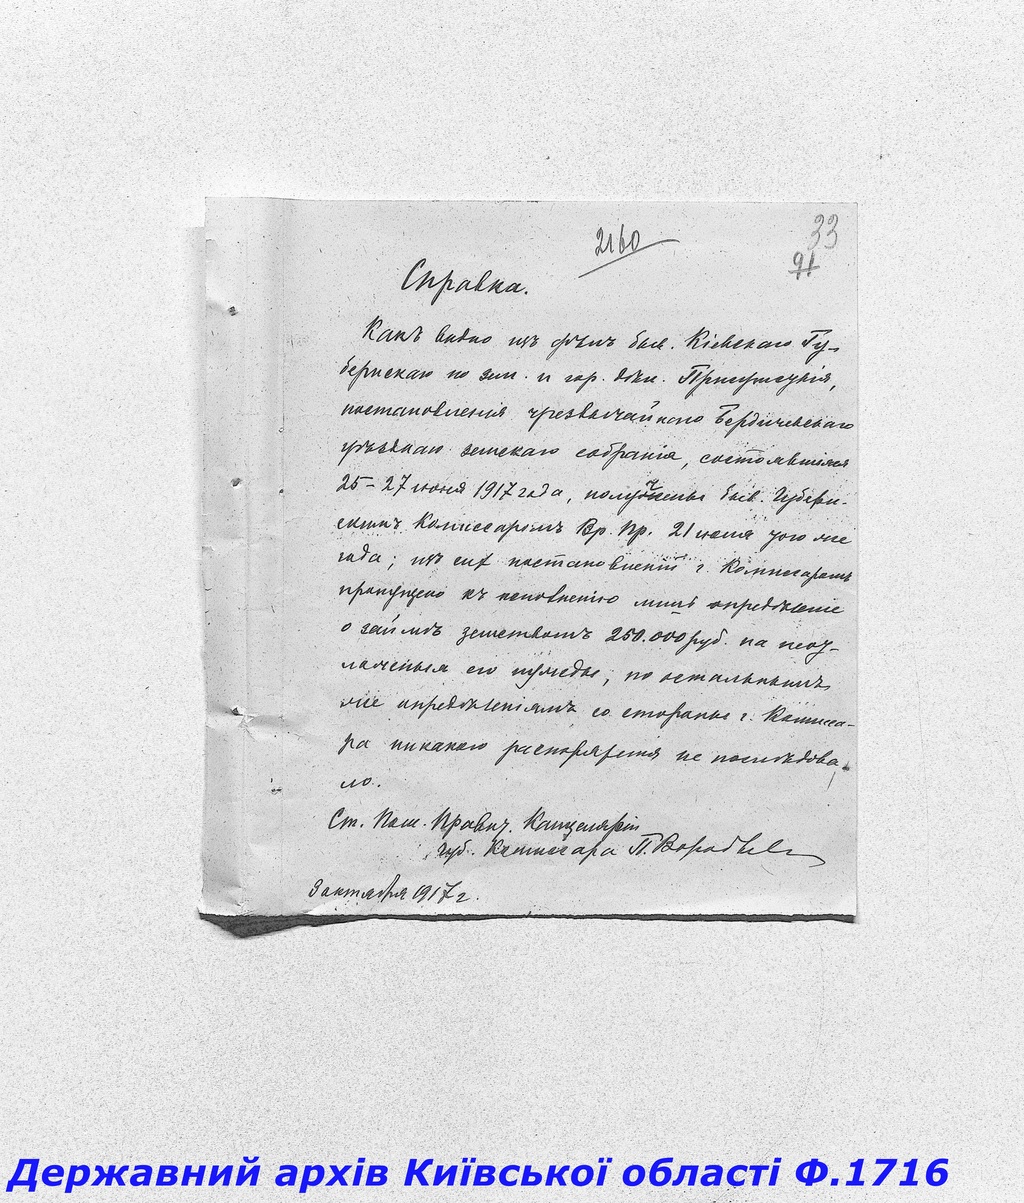 2160
33
91
Справка.
Какъ видно изъ дѣлъ быв. Кіевскаго Гу-
бернскаго по зем. и гор. дѣл. Присутствія,
постановленія чрезвычайнаго Бердичевскаго
уѣзднаго земскаго собранія, состоявшіяся
25-27 іюня 1917 года, получены быв. Губерн-
скимъ Комиссаромъ Вр. Пр. 21 іюля того же
года; изъ сихъ постановленій г. Комиссаромъ
пропущено къ исполненію лишь опредѣленіе
о займѣ земствомъ 250.000 руб. на неот-
ложныя его нужды, по остальнымъ
же опредѣленіямъ со стороны г. Комисса-
ра никакого распоряженія не послѣдова-
ло.
Ст. Пом. Правит. Канцеляріи
Губ. Комиссара П. Воробьев
3 октября 1917 г.
Державний архів Київської області Ф.1716